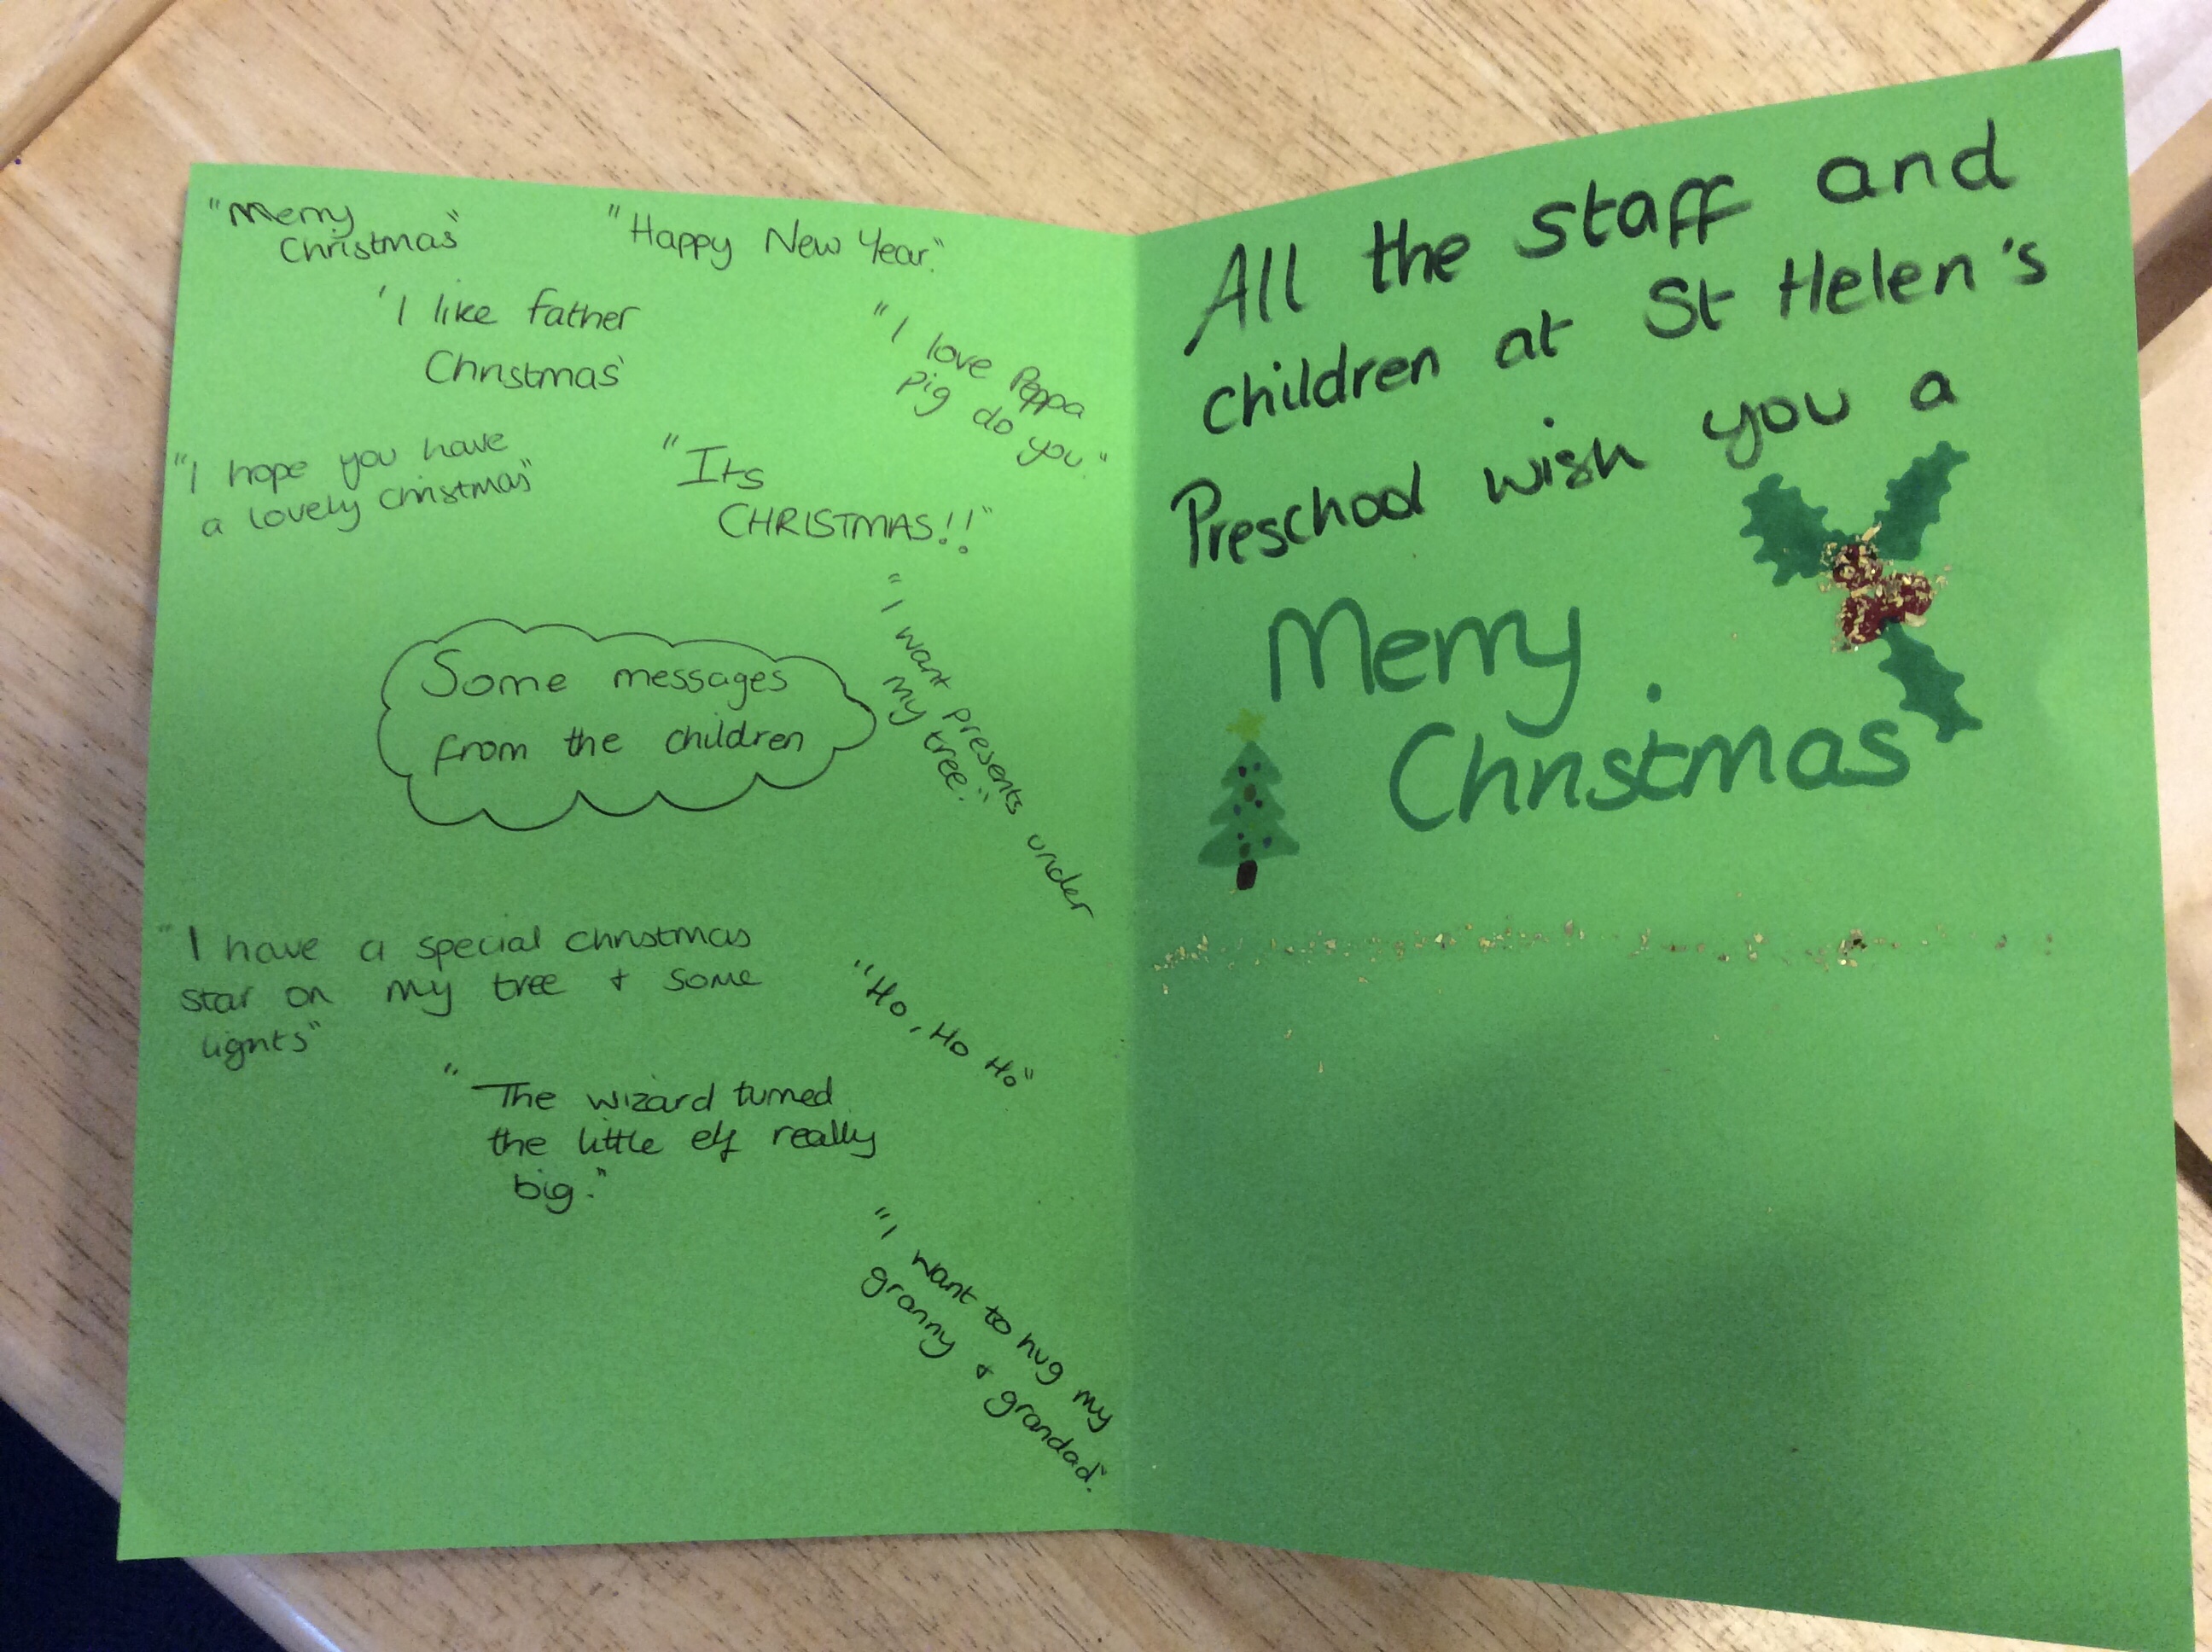 "Merry
Christmas"
"Happy New Year."
'I like father
Christmas'
"I love Peppa
pig do you."
"I hope you have
a lovely christmas"
"Its
CHRISTMAS!!"
Some messages
from the children
"I want presents under
my tree."
"I have a special christmas
star on my tree + some
lights"
"Ho, Ho Ho"
"The wizard turned
the little elf really
big."
"I want to hug my
granny + grandad."
All the staff and
children at St Helen's
Preschool wish you a
Merry
Christmas